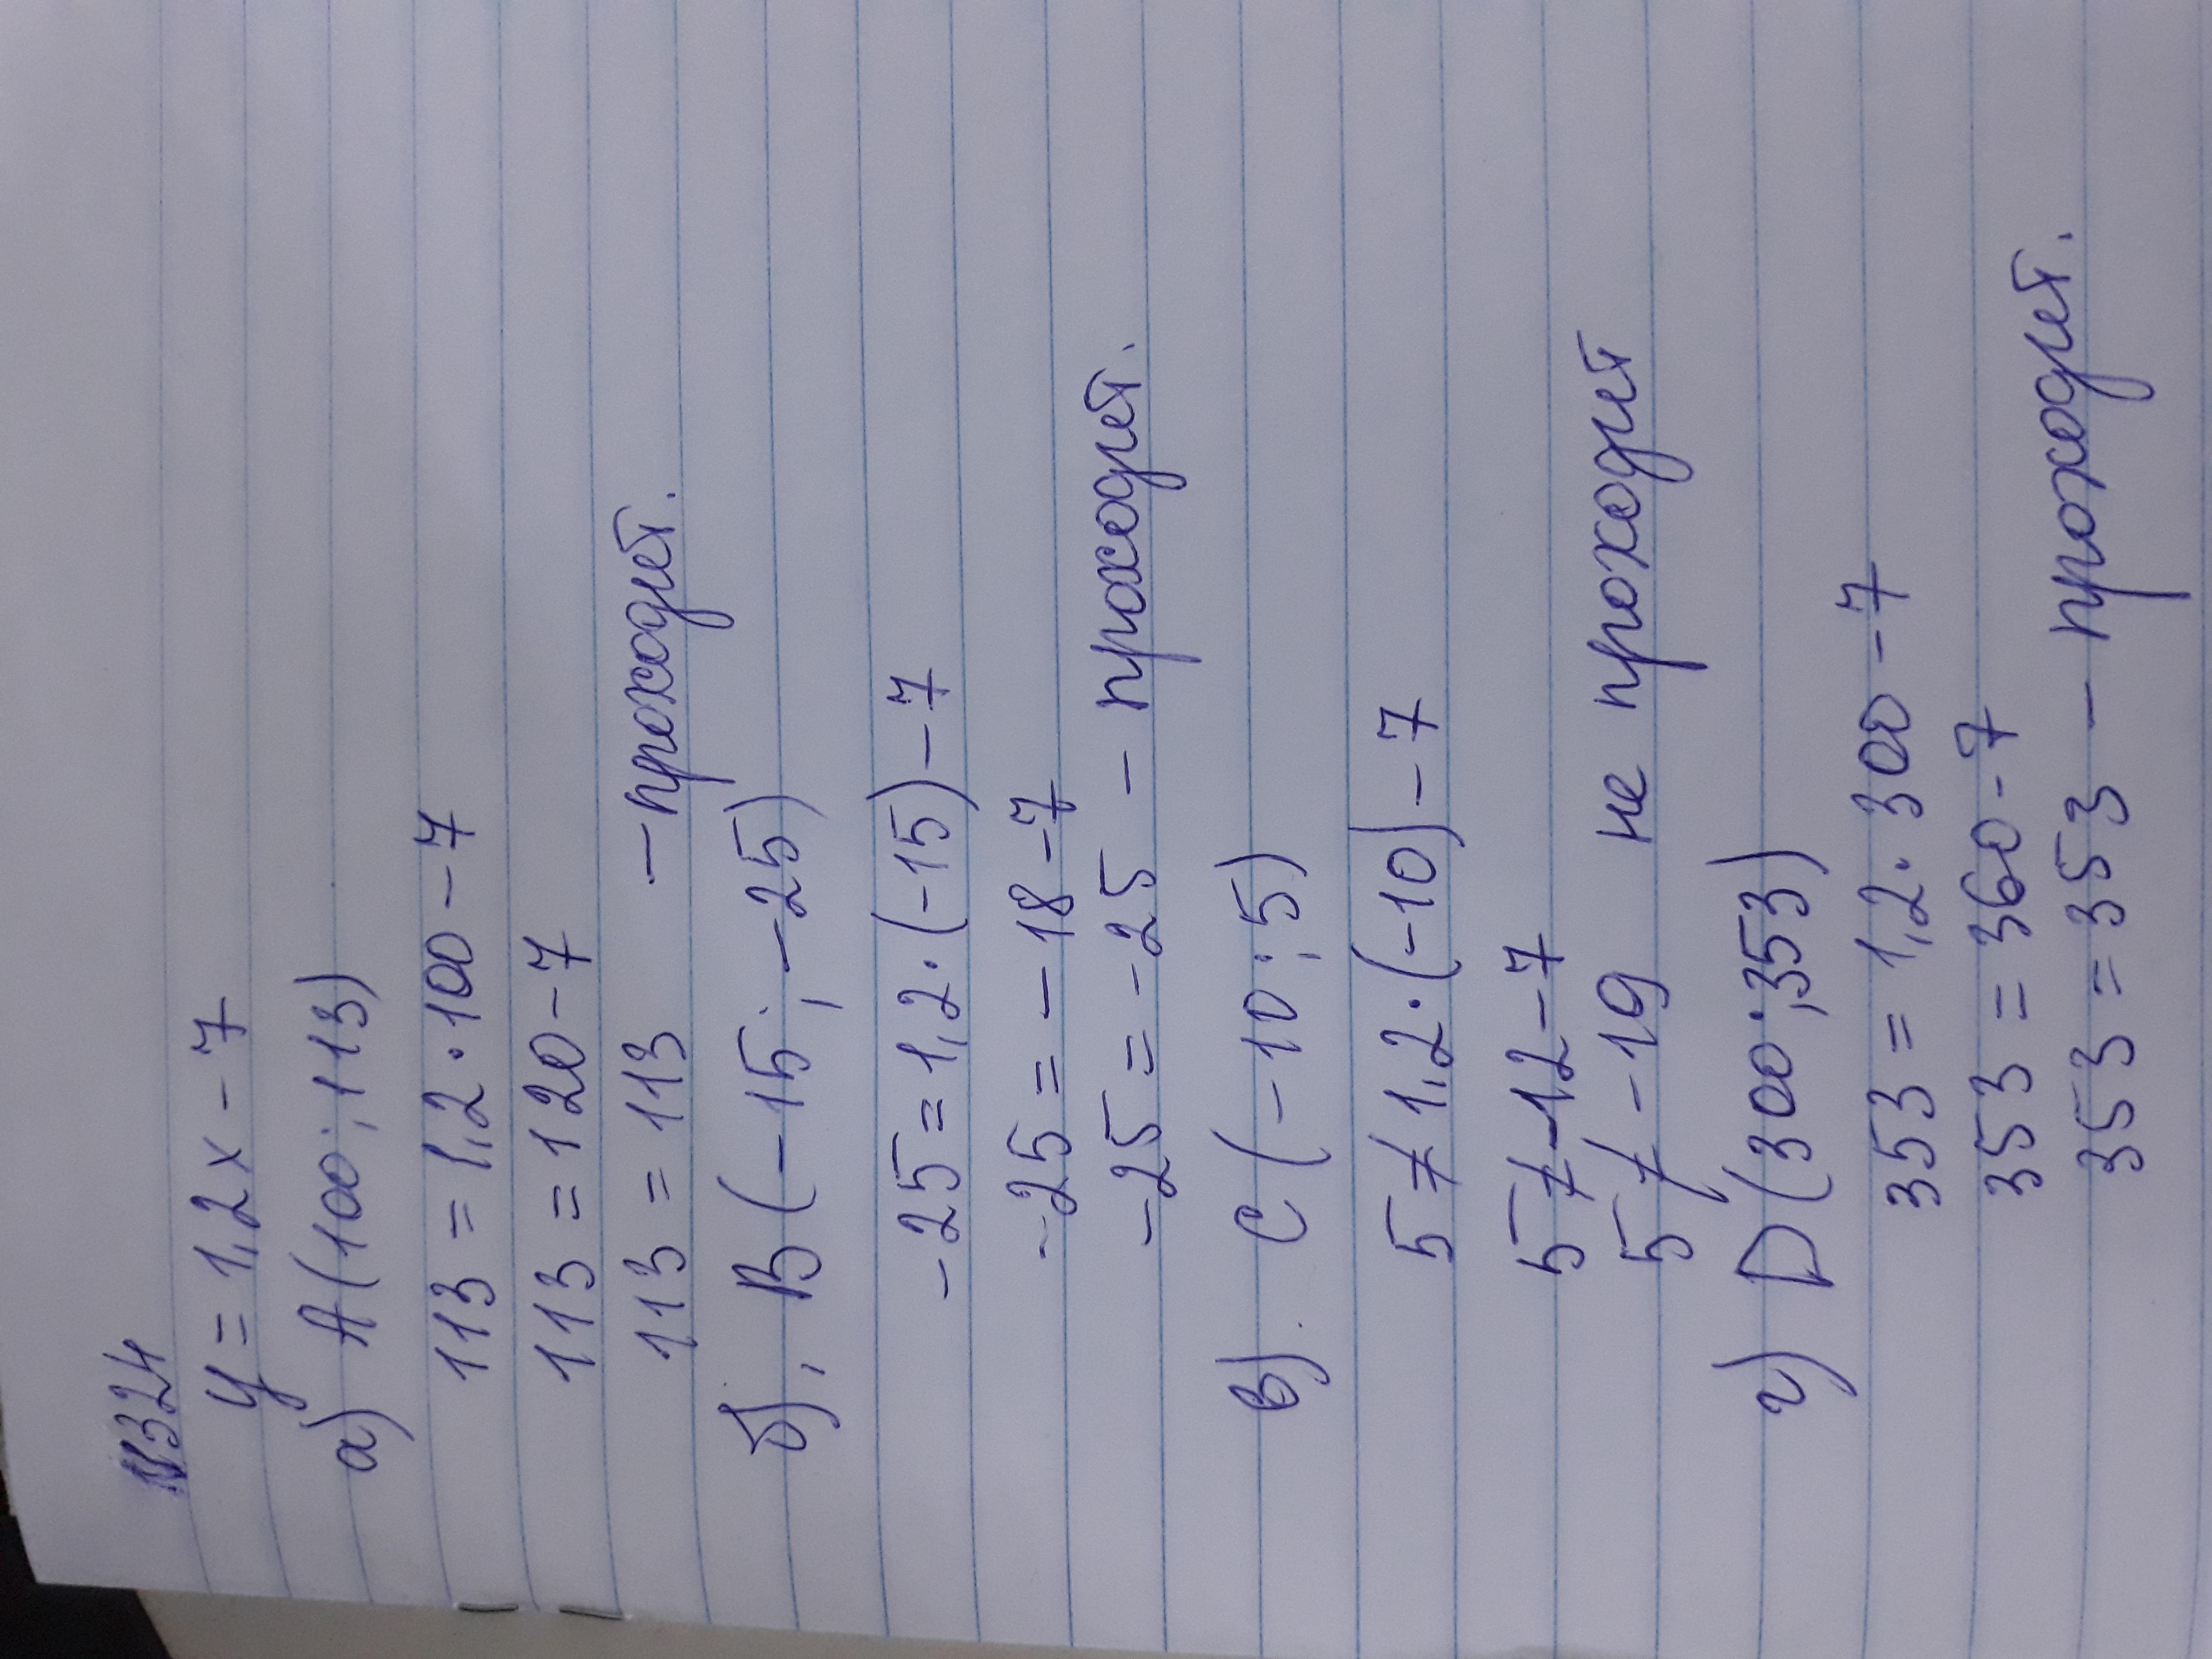 №324
y = 1,2x - 7
а) A(100; 113)
113 = 1,2 · 100 - 7
113 = 120 - 7
113 = 113 - проходит.
б). B (-15; -25)
-25 = 1,2 · (-15) - 7
-25 = -18 - 7
-25 = -25 - проходит.
в). C (-10; 5)
5 ≠ 1,2 · (-10) - 7
5 ≠ -12 - 7
5 ≠ -19 не проходит
г) D (300; 353)
353 = 1,2 · 300 - 7
353 = 360 - 7
353 = 353 - проходит.